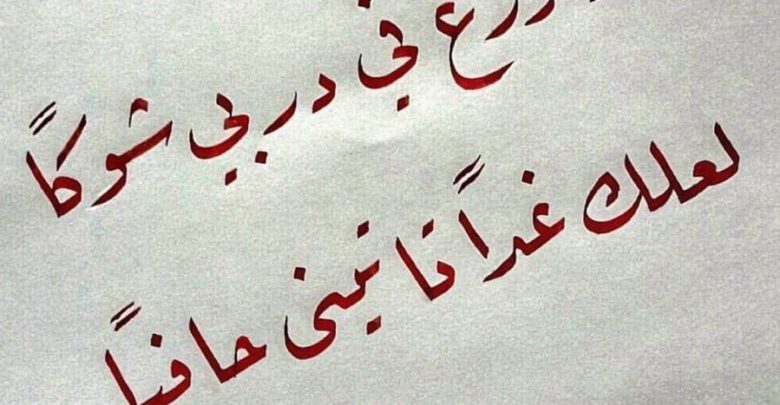 في دربي شوكاً
لعلك غداً تاتيني حافياً